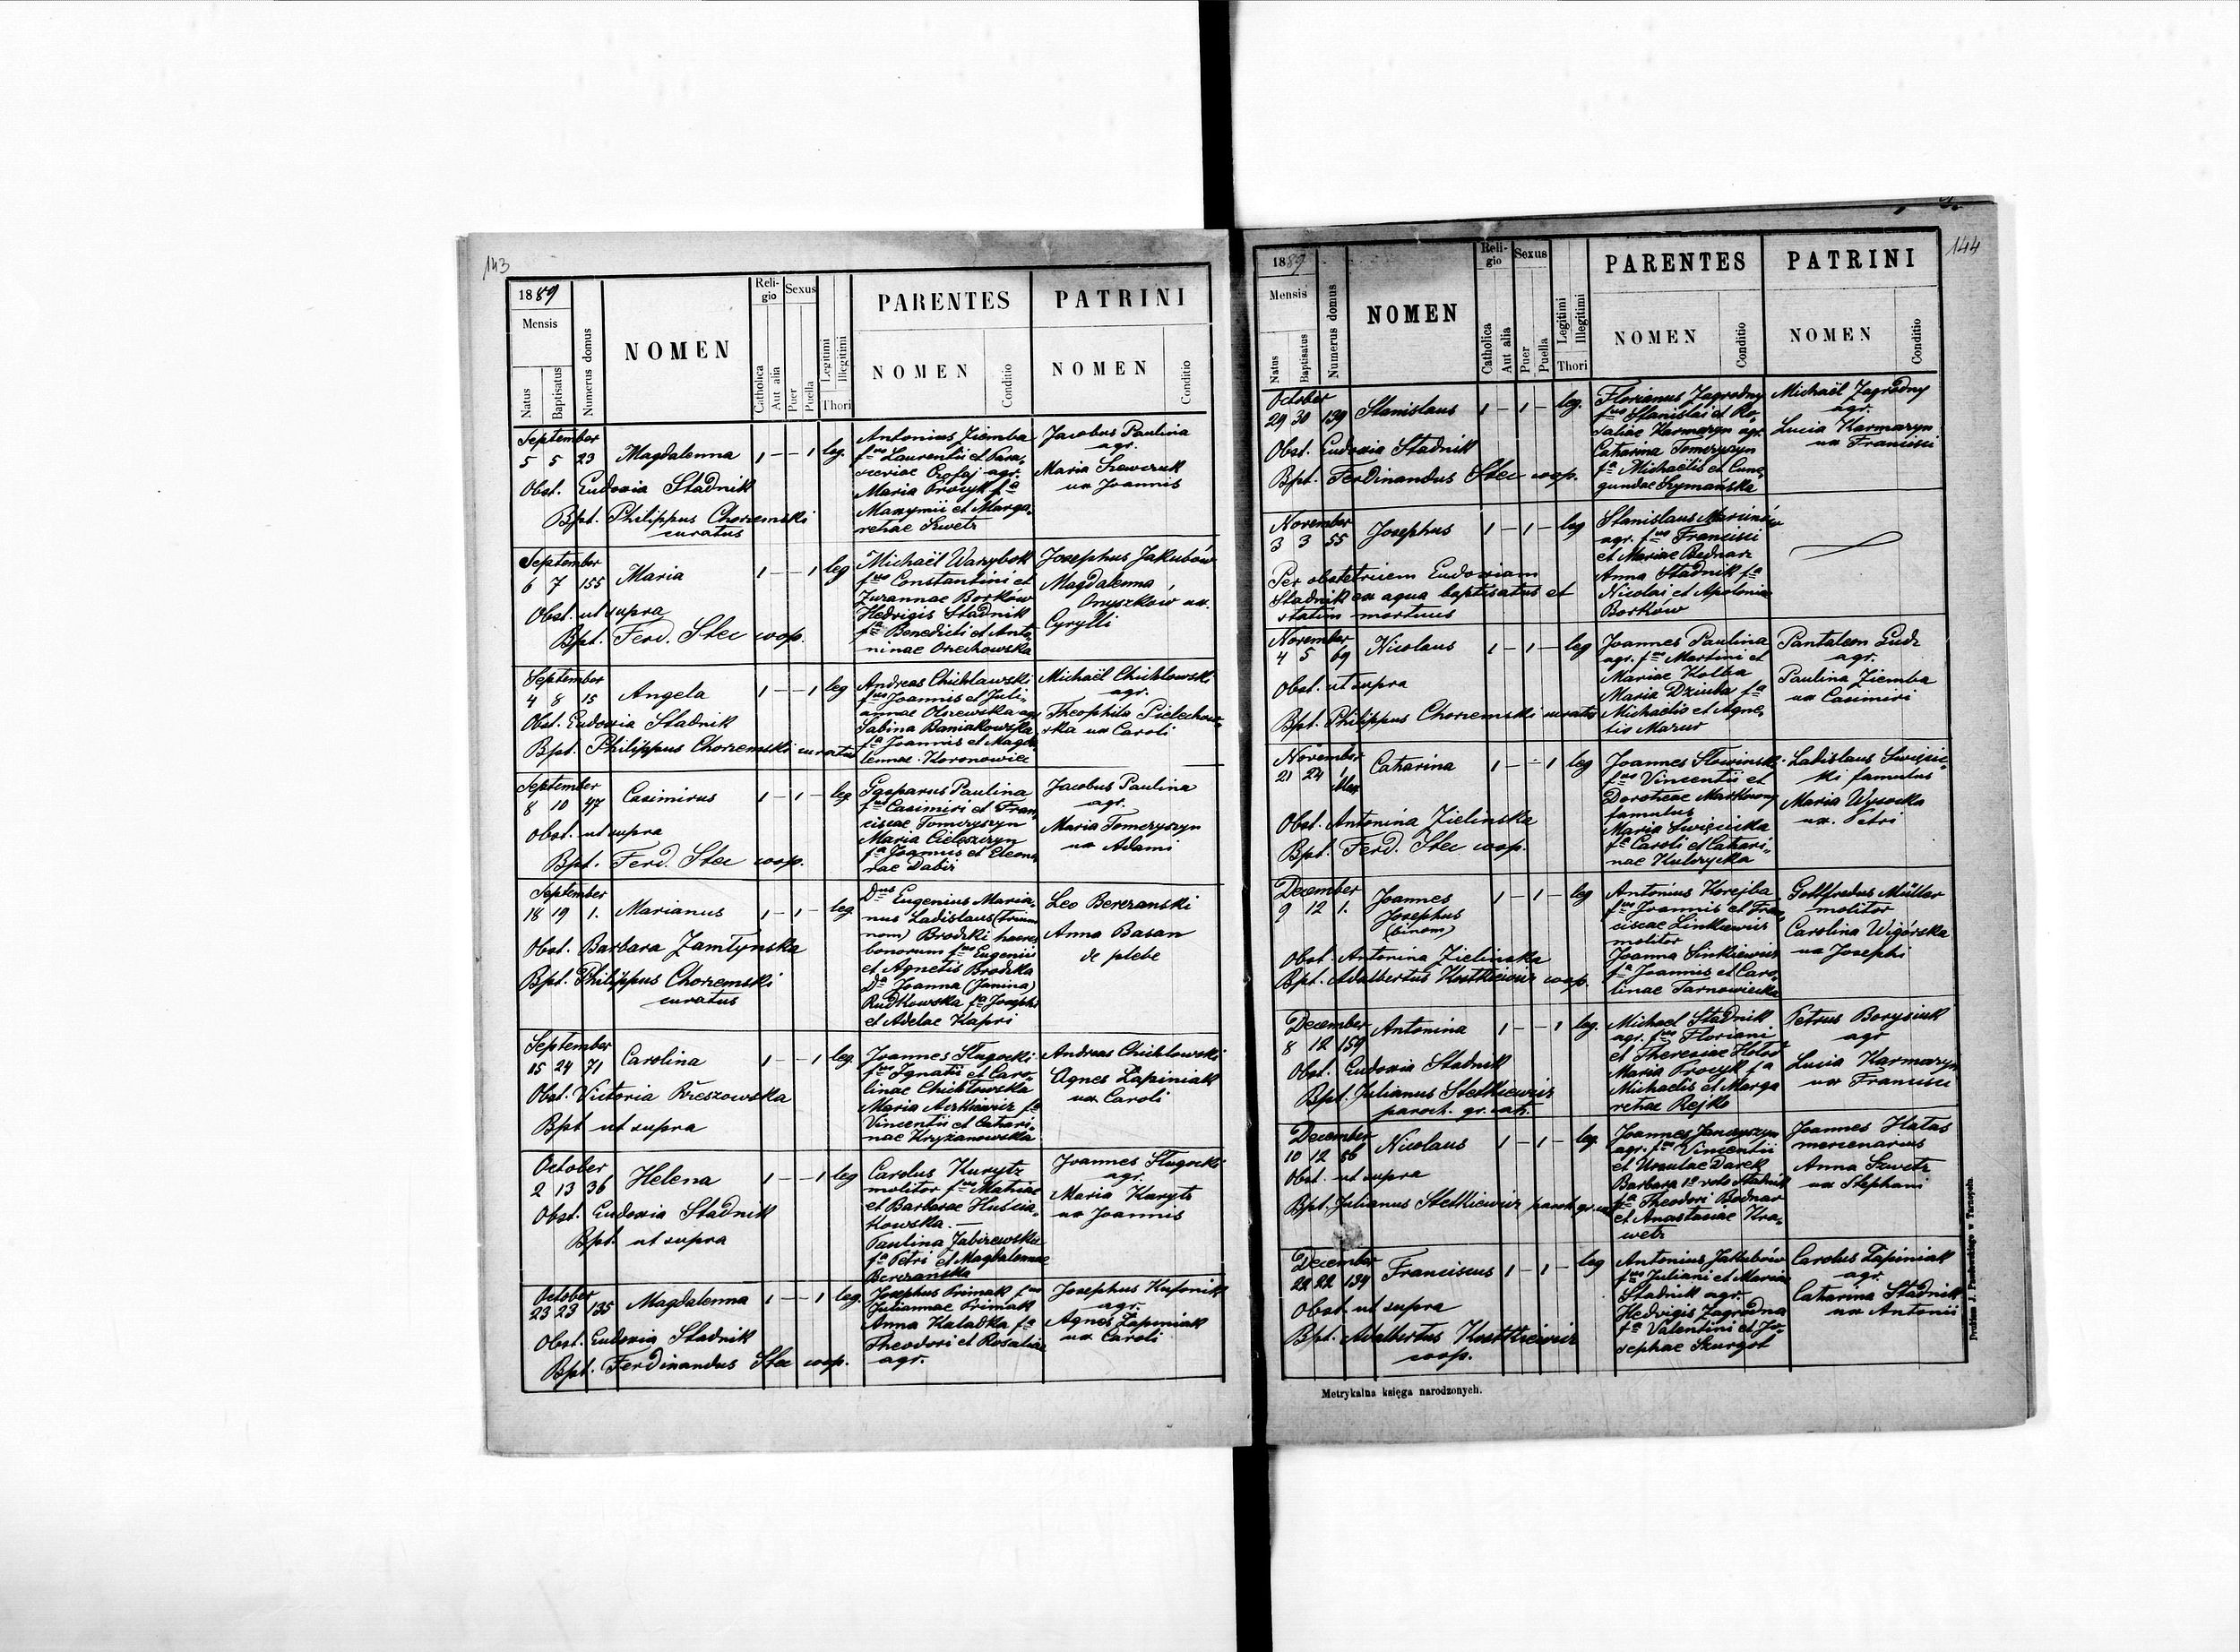 143
1889
Mensis
Natus
Baptisatus
Numerus domus
NOMEN
Reli-
gio
Catholica
Aut alia
Sexus
Puer
Puella
Legitimi
Illegitimi
Thori
PARENTES
NOMEN
Conditio
PATRINI
NOMEN
Conditio
September
5 5 23 Magdalenna 1 – – 1 leg.
Obst. Eudoxia Stadnik
Bpt. Philippus Chorzemski
curatus
Antonius Ziemba
fus Laurentii et Para-
sceviae Profaj agr.
Maria Procyk fa
Maxymii et Marga-
rethae Szwetz
Jacobus Paulina
agr.
Maria Szewczuk
ux Joannis
September
6 7 155 Maria 1 – – 1 leg
Obst. ut supra
Bpt. Ferd. Stec coop.
Michaël Warybok
fus Constantini et
Zuzannae Borków
Hedvigis Stadnik
fa Benedicti et Anto-
ninae Orzechowska
Josephus Jakubów
Magdalenna
Onyszków ux.
Cyrylli
September
4 8 15 Angela 1 – – 1 leg
Obst. Eudoxia Stadnik
Bpt. Philippus Chorzemski curatus
Andreas Chichlawski
fus Joannis et Juli-
annae Olszewska agr
Sabina Boniakowska
fa Joannis et Magda-
lennae Koronowicz
Michaël Chichlowski
agr.
Theophila Pielechow-
ska ux Caroli
September
8 10 47 Casimirus 1 – 1 – leg.
Obst. ut supra
Bpt. Ferd. Stec coop.
Gasparus Paulina
fus Casimiri et Fran-
ciscae Tomczyszyn
Maria Cieloszczyn
fa Joannis et Eleono-
rae Dabir
Jacobus Paulina
agr.
Maria Tomczyszyn
ux Adami
September
18 19 1. Marianus 1 – 1 – leg.
Obst. Barbara Zamłyńska
Bpt. Philippus Chorzemski
curatus
Dnus Eugenius Maria-
nus Ladislaus (trium
nom) Brodzki haeres
bonorum fus Eugenii
et Agnetis Brodzka
Da Joanna (Janina)
Rudkowska fa Josephi
et Adelae Kapri
Leo Berezanski
Anna Basan
de plebe
September
15 24 71 Carolina 1 – – 1 leg.
Obst. Victoria Rzeszowska
Bpt ut supra
Joannes Sługocki
fus Ignatii et Caro-
linae Chichłowska
Maria Aszkiewicz fa
Vincentii et Cathari-
nae Kryżanowska
Andreas Chichlowski
Agnes Łapiniak
ux Caroli
October
2 13 36 Helena 1 – – 1 leg
Obst. Eudoxia Stadnik
Bpt. ut supra
Carolus Kurytz
molitor fus Mathiae
et Barbarae Huścia-
kowska. —
Paulina Zabizewska
fa Petri et Magdalennae
Berezanska
Joannes Sługocki
agr.
Maria Karyts
ux Joannis
October
23 23 135 Magdalenna 1 – – 1 leg.
Obst. Eudoxia Stadnik
Bpt. Ferdinandus Stec coop.
Josephus Primak fus
Juliannae Primak
Anna Kaladka fa
Theodori et Rosaliae
agr.
Josephus Kufonik
agr.
Agnes Łapiniak
ux Caroli
144
1889
Mensis
Natus
Baptisatus
Numerus domus
NOMEN
Reli-
gio
Catholica
Aut alia
Sexus
Puer
Puella
Legitimi
Illegitimi
Thori
PARENTES
NOMEN
Conditio
PATRINI
NOMEN
Conditio
October
29 30 139 Stanislaus 1 – 1 – leg.
Obst. Eudoxia Stadnik
Bpt. Ferdinandus Stec coop.
Florianus Zagrodny
fus Stanislai et Ro-
saliae Karmazyn agr.
Catharina Tomczyszyn
fa Michaëlis et Cune-
gundae Szymańska
Michaël Zagrodny
agr.
Lucia Karmazyn
ux Francisci
November
3 3 55 Josephus 1 – 1 – leg
Per obstetricem Eudoxiam
Stadnik ex aqua baptisatus et
statim mortuus
Stanislaus Marcinków
agr. fus Francisci
et Mariae Bednarz
Anna Stadnik fa
Nicolai et Apolonia
Borków
November
4 5 69 Nicolaus 1 – 1 – leg
Obst. ut supra
Bpt. Philippus Chorzemski curatus
Joannes Paulina
agr. fus Martini et
Mariae Kolba
Maria Dziuba fa
Michaëlis et Agne-
tis Mazur
Pantaleon Gudz
agr.
Paulina Ziemba
ux Casimiri
November
21 24 1 Catharina 1 – – 1 leg
Obst. Antonina Zielinska
Bpt. Ferd. Stec coop.
Joannes Słowinski
fus Vincentii et
Dorotheae Markowny
famulus
Maria Swięcicka
fa Caroli et Cathari-
nae Kulczycka
Ladislaus Swięcic-
ki famulus
Maria Wysocka
ux. Petri
December
9 12 1. Joannes 1 – 1 – leg
Josephus
(binom)
Obst. Antonina Zielinska
Bpt. Adalbertus Kostkiewicz coop.
Antonius Korejba
fus Joannis et Fran-
ciscae Linkiewicz
molitor
Joanna Sinkiewicz
fa Joannis et Caro-
linae Tarnowiecka
Gottfredus Müller
molitor
Carolina Wigórska
ux Josephi
December
8 12 159 Antonina 1 – – 1 leg.
Obst. Eudoxia Stadnik
Bpt. Julianus Stetkiewicz
paroch. gr. cath.
Michael Stadnik
agr. fus Floriani
et Theresiae Hołod
Maria Procyk fa
Michaelis et Marga
rethae Rejko
Petrus Borysiuk
agr
Lucia Karmazyn
ux Francisci
December
10 12 56 Nicolaus 1 – 1 – leg.
Obst. ut supra
Bpt. Julianus Stetkiewicz paroch gr. cat
Joannes Janczyszyn
agr. fus Vincentii
et Ursulae Darek
Barbara 1o voto Stadnik
fa Theodori Bodnar
et Anastasiae Kra-
wetz
Joannes Hatas
mercenarius
Anna Szwetz
ux Stephani
December
22 22 134 Franciscus 1 – 1 – leg
Obst. ut supra
Bpt. Adalbertus Kostkiewicz
coop.
Antonius Jakubów
fus Juliani et Mariae
Stadnik agr.
Hedvigis Zagrodna
fa Valentini et Jo-
sephae Skurgot
Carolus Łapiniak
agr.
Catharina Stadnik
ux Antonii
Metrykalna księga narodzonych.
Drukiem J. Pawłowskiego w Tarnopolu.